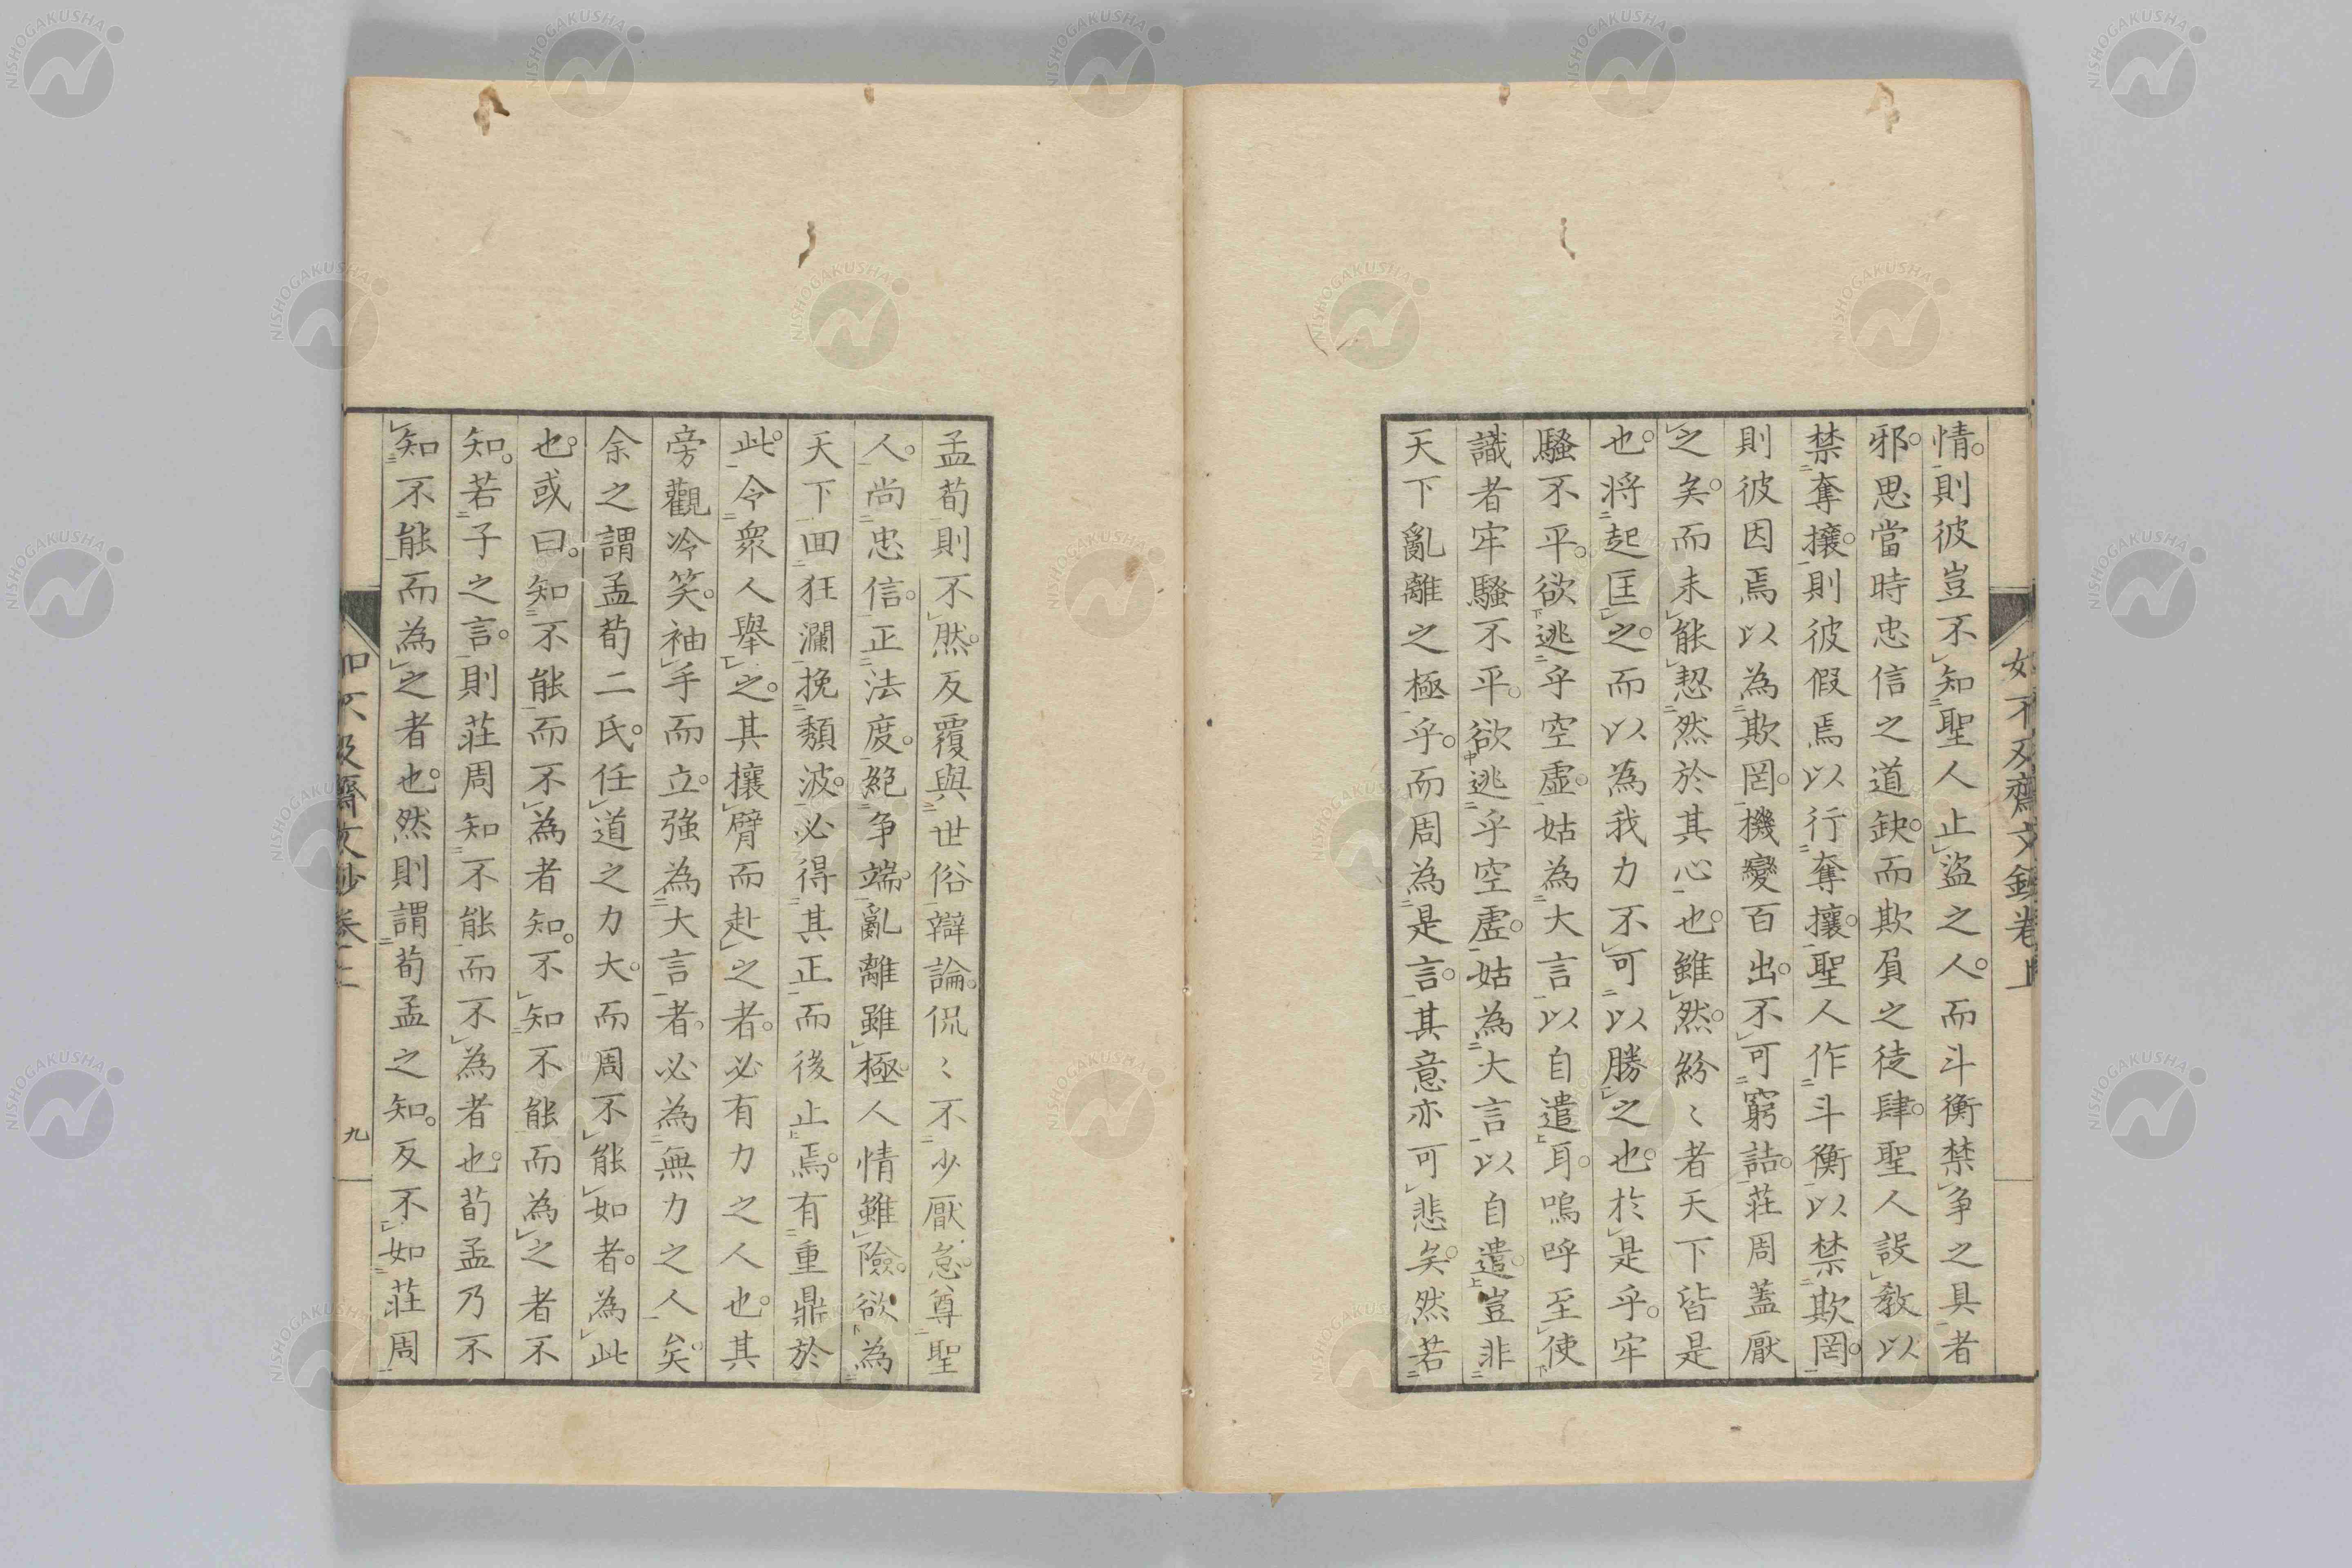 如不及齋文鈔卷上
情。則彼豈不知聖人止盜之人。而斗衡禁爭之具者
邪。思當時忠信之道缺。而欺負之徒肆。聖人設教以
禁奪攘。則彼假焉以行奪攘。聖人作斗衡以禁欺罔。
則彼因焉以為欺罔。機變百出。不可窮詰。莊周蓋厭
之矣。而未能恝然於其心也。雖然。紛〻者天下皆是
也。將起匡之。而以為我力不可以勝之也。於是乎。牢
騷不平。欲逃乎空虛。姑為大言以自遣耳。嗚呼至使
識者牢騷不平。欲逃乎空虛。姑為大言以自遣。豈非
天下亂離之極乎。而周為是言。其意亦可悲矣。然若
孟荀則不然。反覆與世俗辯論。侃〻不少厭怠。尊聖
人。尚忠信。正法度。絕爭端。亂離雖極人情雖險。欲為
天下回狂瀾挽頹波。必得其正而後止焉。有重鼎於
此。令衆人舉之。其攘臂而赴之者。必有力之人也。其
旁觀冷笑。袖手而立。強為大言者。必為無力之人矣。
余之謂孟荀二氏。任道之力大。而周不能如者。為此
也。或曰。知不能而不為者知。不知不能而為之者不
知。若子之言。則莊周知不能而不為者也。荀孟乃不
知不能而為之者也。然則謂荀孟之知。反不如莊周
如不及齋文鈔卷上
九
NISHOGAKUSHA